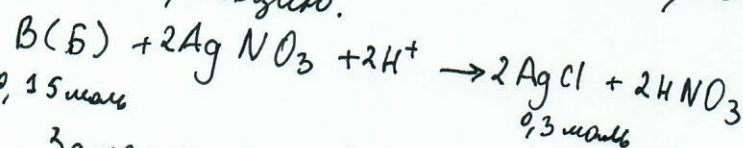 В(Б) + 2AgNO₃ + 2H⁺ → 2AgCl + 2HNO₃
0,15 моль 0,3 моль